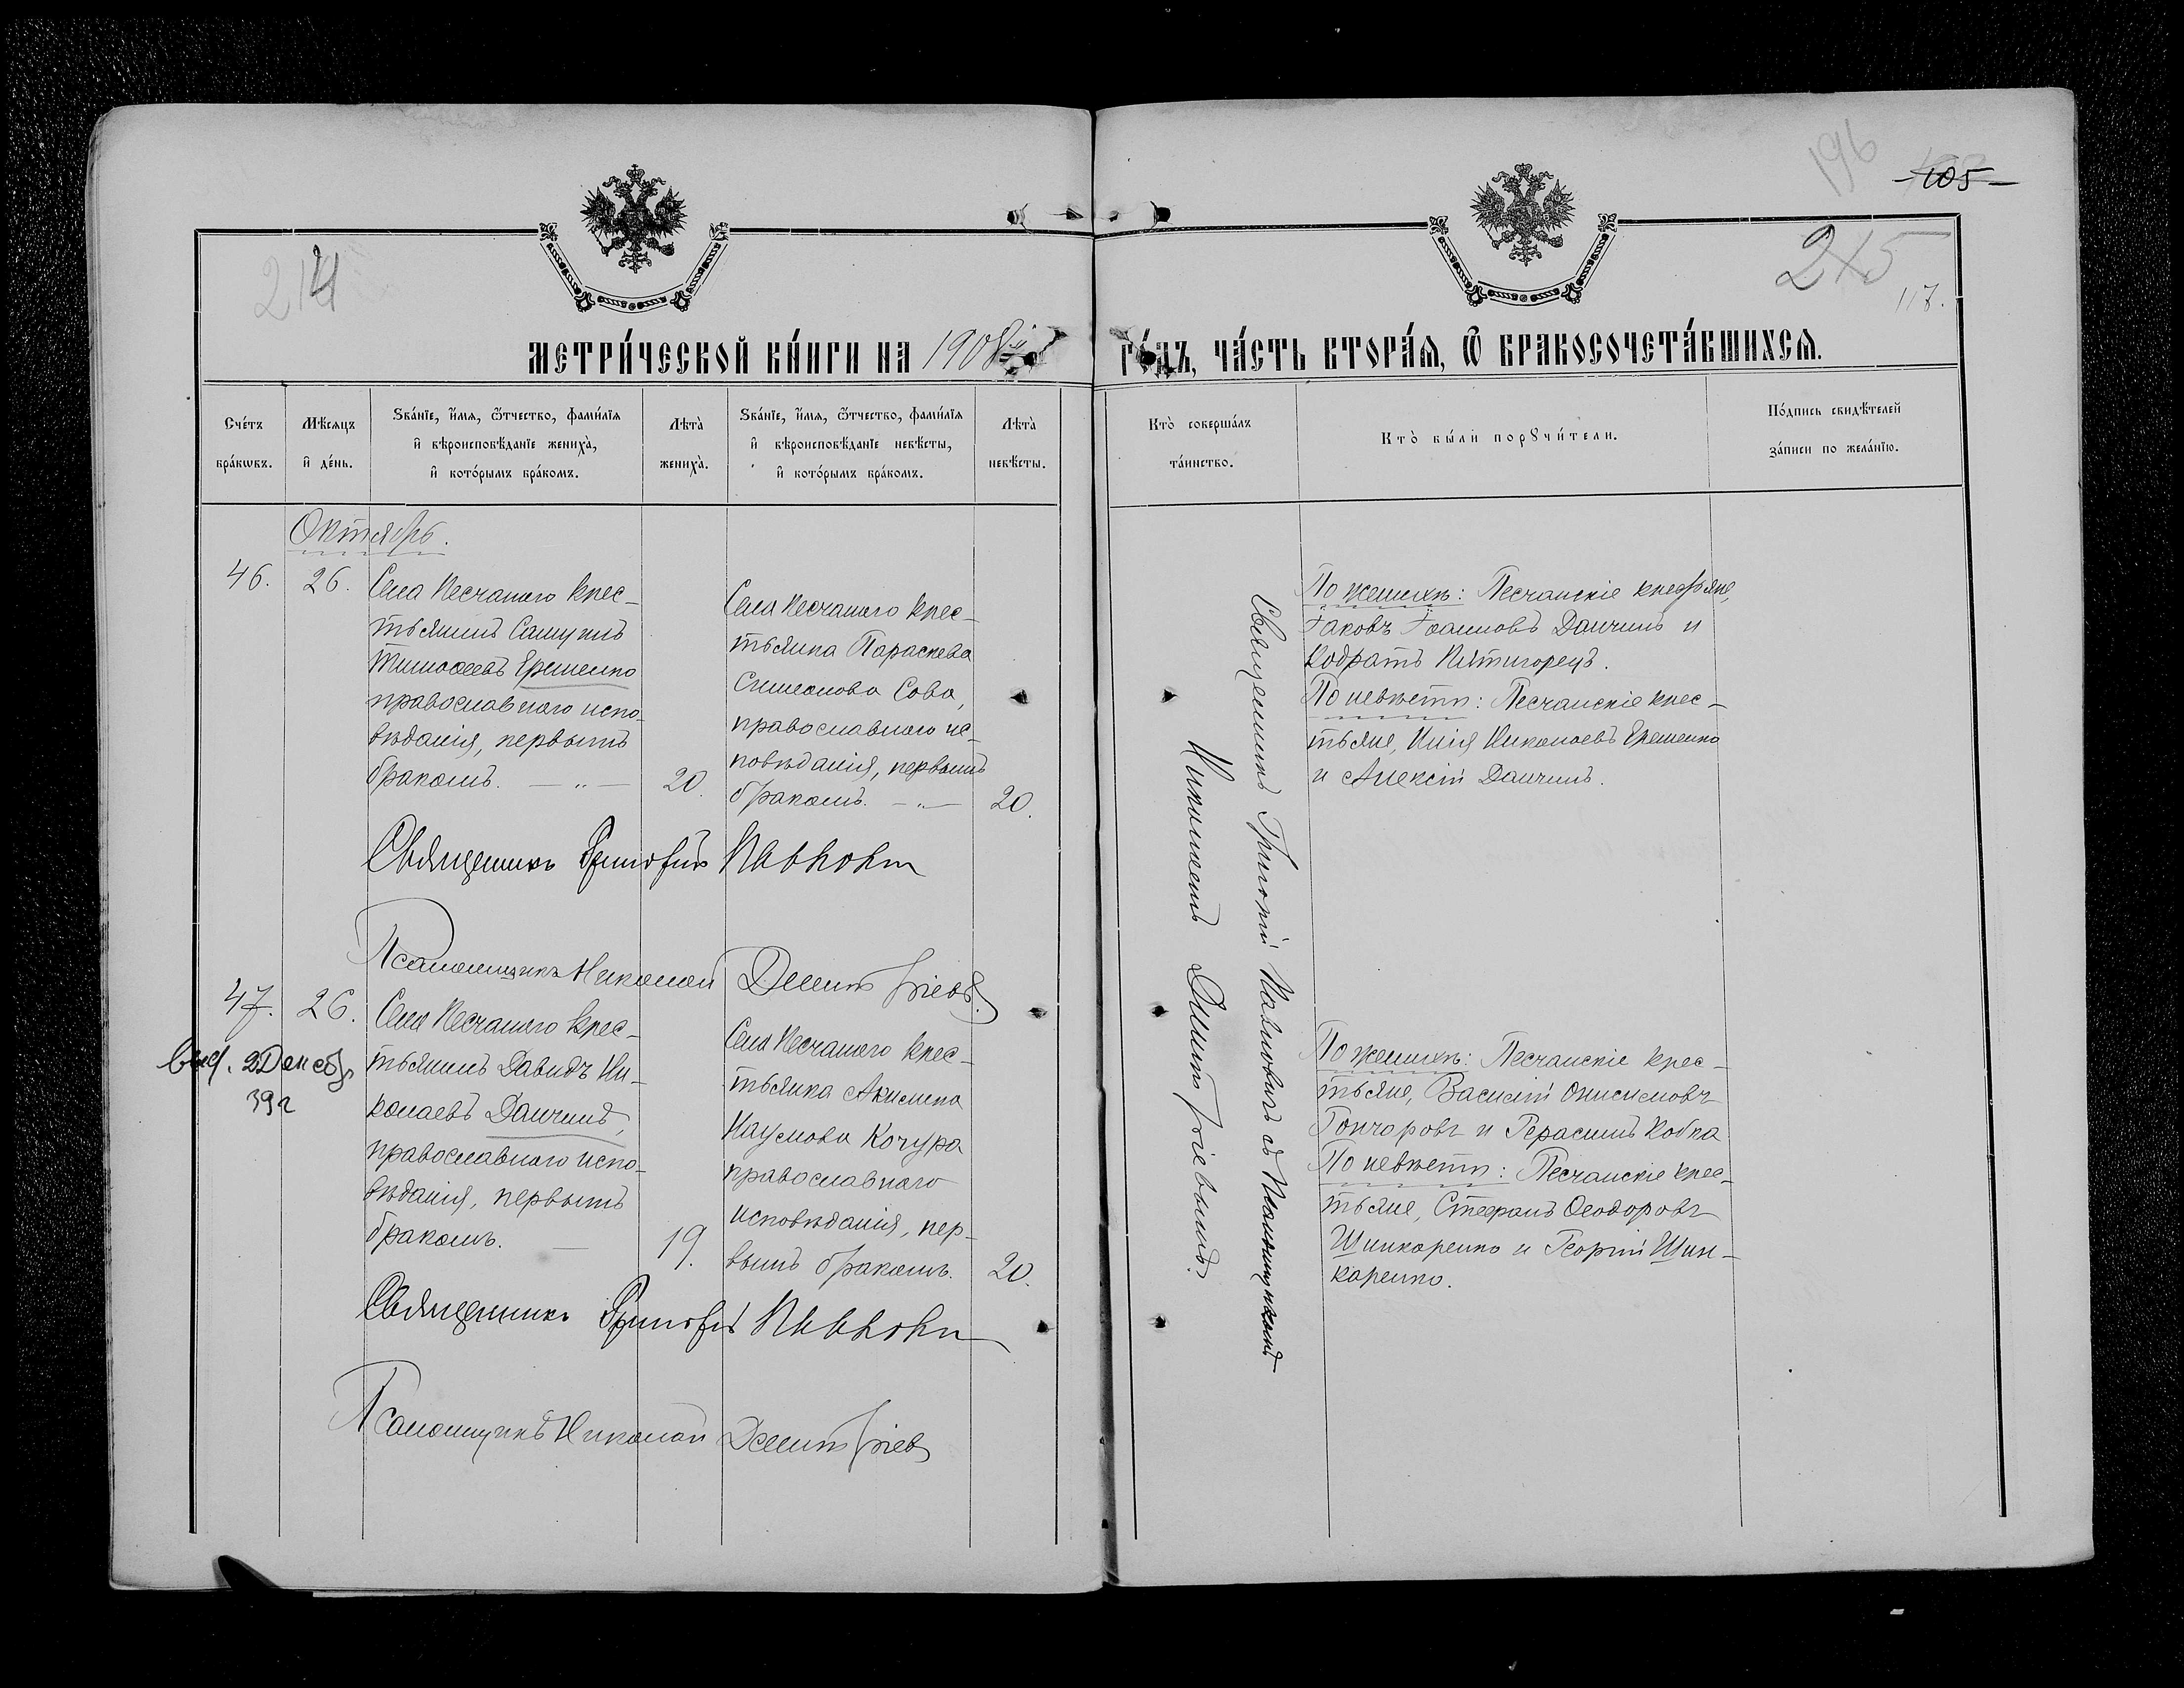 196
105
214
215
117.
МЕТРИ́ЧЕСКОЙ КНИ́ГИ НА 1908й ГО́ДЪ, ЧА́СТЬ ВТОРА́Я, Ѿ БРАКОСОЧЕТА́ВШИХСЯ.
Сче́тъ бра́кωвъ.
Мѣ́сяцъ и҆ де́нь.
Зва́нїе, и҆́мя, ѻ҆́тчество, фами́лїя и҆ вѣроисповѣ́данїе жениха̀, и҆ кото́рымъ бра́комъ.
Лѣта̀ жениха̀.
Зва́нїе, и҆́мя, ѻ҆́тчество, фами́лїя и҆ вѣроисповѣ́данїе невѣ́сты, и҆ кото́рымъ бра́комъ.
Лѣта̀ невѣ́сты.
Кто̀ соверша́лъ та́инство.
Кто̀ бы́ли порꙋчи́тели.
По́дпись свидѣ́телей за́писи по жела́нїю.
Октябрь.
46.
26.
Села Песчанаго крес-
тьянинъ Самуилъ
Тимоѳеевъ Ерешенко
православнаго испо-
вѣданія, первымъ
бракомъ. — „ —
20.
Села Песчанаго крес-
тьянка Параскева
Симеонова Сова,
православнаго ис-
повѣданія, первымъ
бракомъ. — „ —
20.
Священникъ Григорій Павловъ
Священникъ Григорій Павловичъ съ Псаломщикомъ
Николаемъ Димитріевымъ.
По женихѣ: Песчанскіе крестьяне,
Іаковъ Іоанновъ Данчинъ и
Кодратъ Пятигорецъ.
По невѣстѣ: Песчанскіе крес-
тьяне, Илія Николаевъ Ерешенко
и Алексій Данчинъ.
Псаломщикъ Николай Димитріевъ.
47.
26.
выд. 2 Декабр
39 г
Села Песчанаго крес-
тьянинъ Давидъ Ни-
колаевъ Данчинъ,
православнаго испо-
вѣданія, первымъ
бракомъ. —
19.
Села Песчанаго крес-
тьянка Акилина
Наумова Кочура
православнаго
исповѣданія, пер-
вымъ бракомъ.
20.
Священникъ Григорій Павловъ
По женихѣ: Песчанскіе крес-
тьяне, Василій Онисимовъ
Гончаровъ и Герасимъ Кобка
По невѣстѣ: Песчанскіе крес-
тьяне, Стефанъ Ѳеодоровъ
Шинкаренко и Георгій Шин-
каренко.
Псаломщикъ Николай Димитріевъ